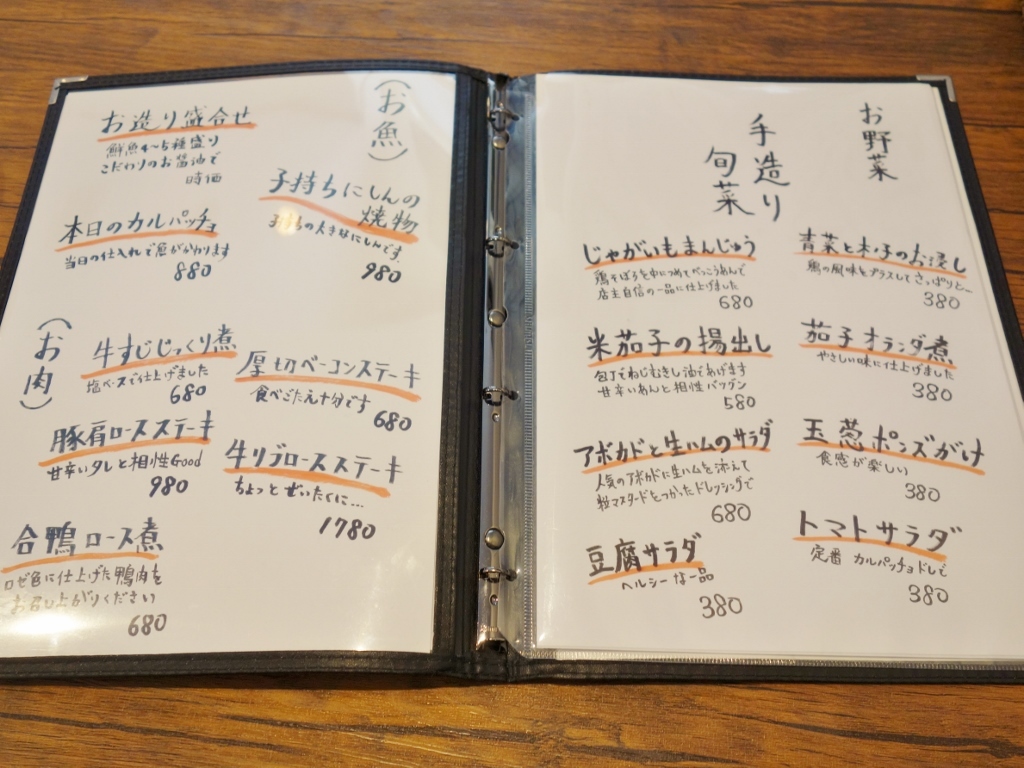 お野菜
手造り
旬菜
青菜と木の子のお浸し
鶏の風味をプラスしてさっぱりと…
380
茄子オランダ煮
やさしい味に仕上げました
380
玉葱ポンズがけ
食感が楽しい
380
トマトサラダ
定番 カルパッチョドレで
380
じゃがいもまんじゅう
鶏そぼろを中につめてべっこうあんで
店主自信の一品に仕上げました
680
米茄子の揚出し
包丁でねじむきし油であげます
甘辛いあんと相性バツグン
580
アボカドと生ハムのサラダ
人気のアボカドに生ハムを添えて
粒マスタードをつかったドレッシングで
680
豆腐サラダ
ヘルシーな一品
380
(お魚)
子持ちにしんの
焼物
子持ちの大きなにしんです。
980
お造り盛合せ
鮮魚4~5種盛り
こだわりのお醤油で
時価
本日のカルパッチョ
当日の仕入れで魚がかわります
880
(お肉)
厚切ベーコンステーキ
食べごたえ十分です
680
牛リブロースステーキ
ちょっとぜいたくに…
1780
牛すじじっくり煮
塩ベースで仕上げました
680
豚肩ロースステーキ
甘辛いタレと相性Good
980
合鴨ロース煮
ロゼ色に仕上げた鴨肉を
お召し上がりください
680